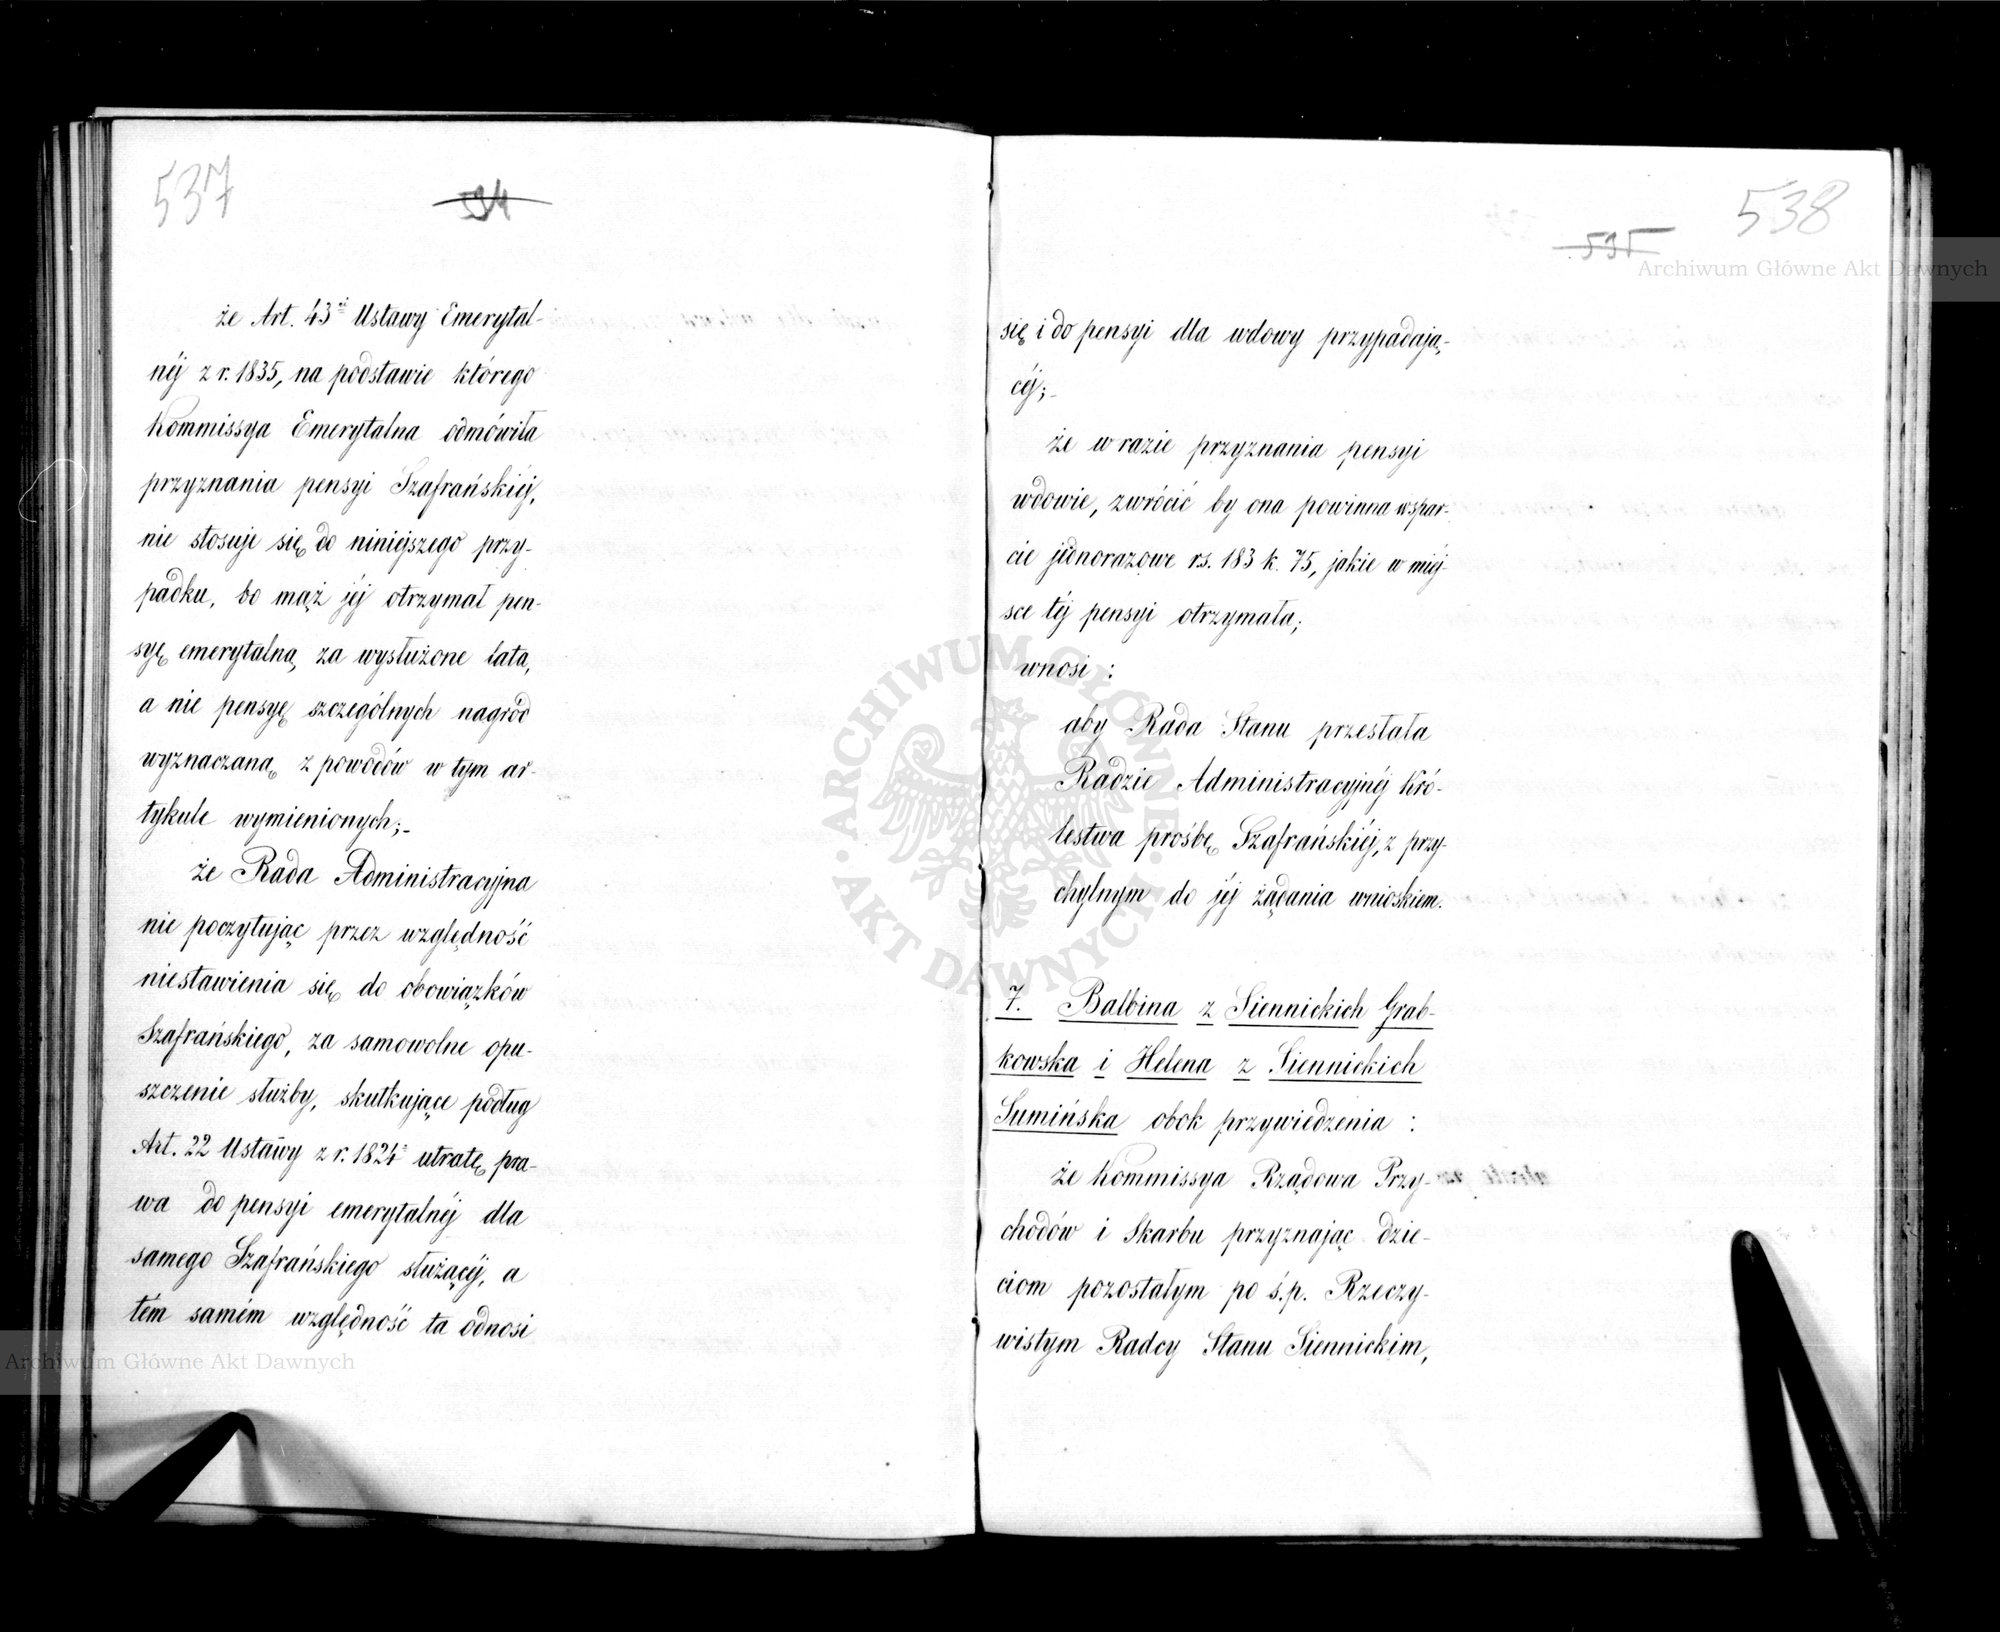 537
534
że Art. 43. Ustawy Emerytal-
néj z r. 1835, na podstawie którego
Kommissya Emerytalna odmówiła
przyznania pensyi Szafrańskiéj,
nie stosuje się do niniejszego przy-
padku, bo mąż jéj otrzymał pen-
syę emerytalną za wysłużone lata,
a nie pensyę szczególnych nagród
wyznaczaną z powodów w tym ar-
tykule wymienionych;-
że Rada Administracyjna
nie poczytując przez względność
niestawienia się do obowiązków
Szafrańskiego, za samowolne opu-
szczenie służby, skutkujące podług
Art. 22 Ustawy z r. 1824 utratę pra-
wa do pensyi emerytalnéj dla
samego Szafrańskiego służącéj, a
tém samém względność ta odnosi
538
535
się i do pensyi dla wdowy przypadają-
céj;-
że w razie przyznania pensyi
wdowie, zwrócić by ona powinna wspar-
cie jednorazowe rs. 183 k. 75, jakie w miéj-
sce téj pensyi otrzymała;
wnosi :
aby Rada Stanu przesłała
Radzie Administracyjnéj Kró-
lestwa prośbę Szafrańskiéj, z przy-
chylnym do jéj żądania wnioskiem.
7. Balbina z Siennickich Grab-
kowska i Helena z Siennickich
Sumińska obok przywiedzenia :
że Kommissya Rządowa Przy-
chodów i Skarbu przyznając dzie-
ciom pozostałym po ś.p. Rzeczy-
wistym Radcy Stanu Siennickim,
Archiwum Główne Akt Dawnych
Archiwum Główne Akt Dawnych
ARCHIWUM GŁÓWNE
AKT DAWNYCH